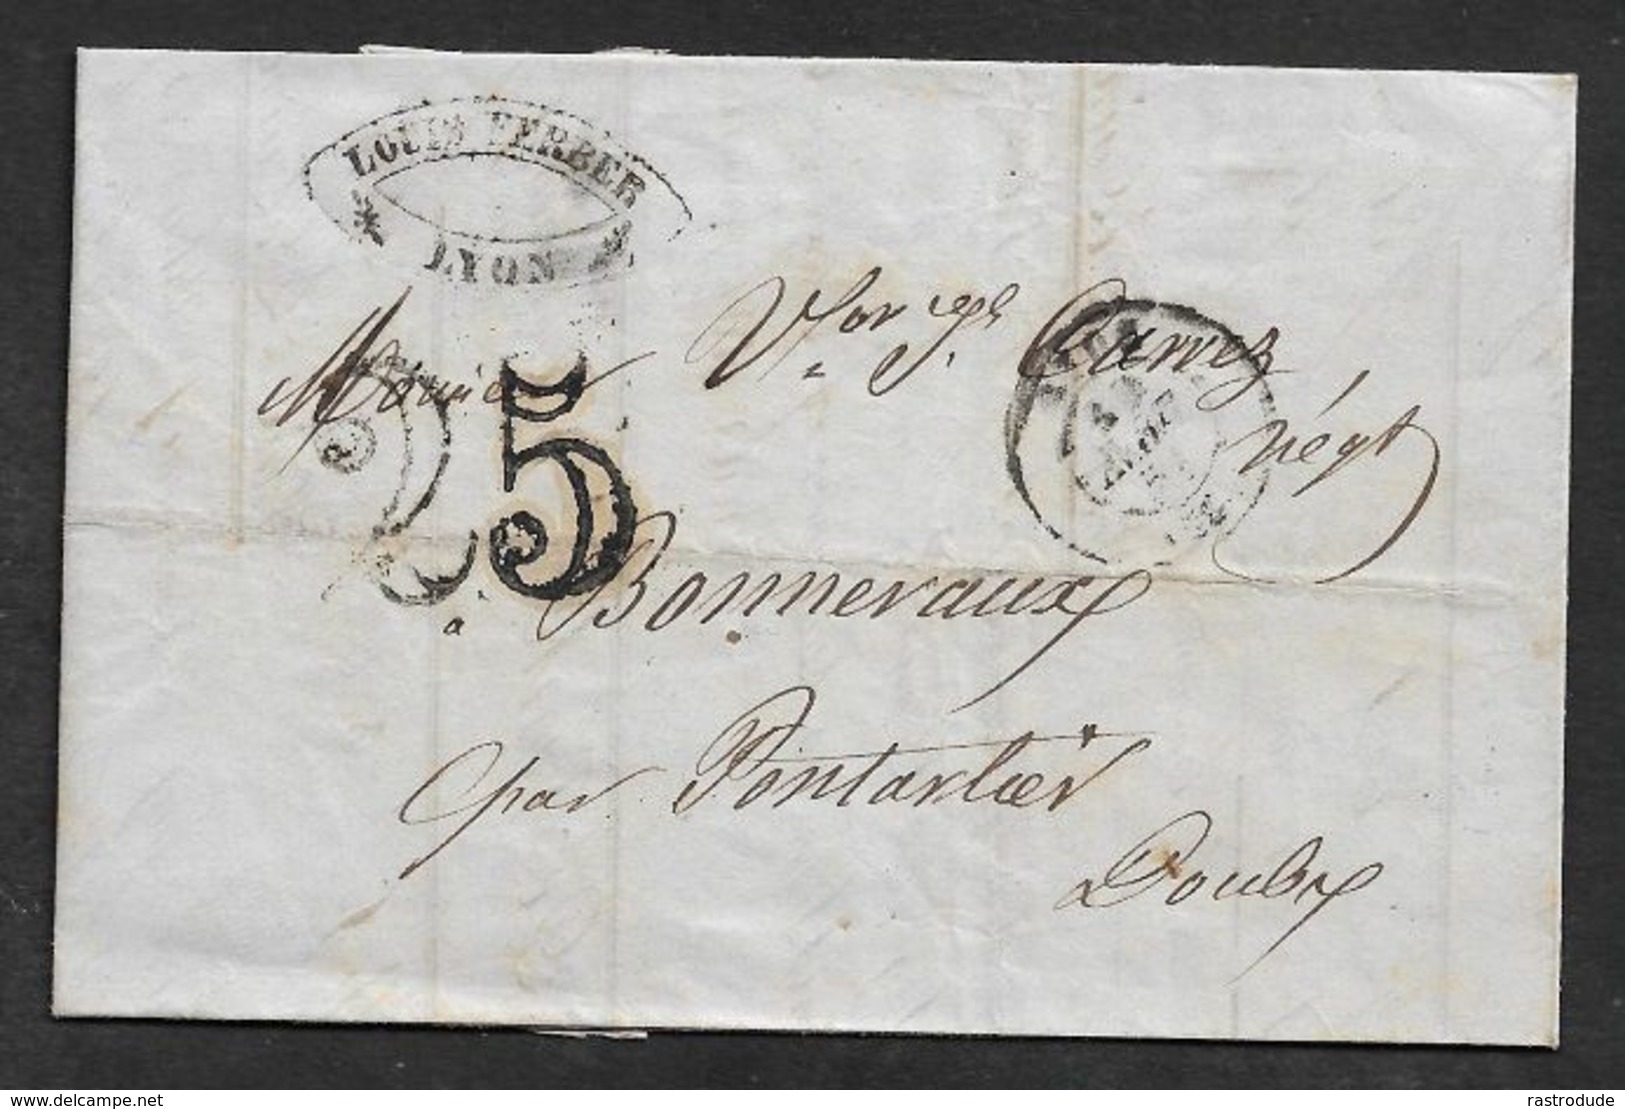 LOUIS FERBER
LYON
Monsieur Vor Jph
négt
25
a Bonnevaux
par Pontarlier
Doubs
delcampe.net
rastrodude